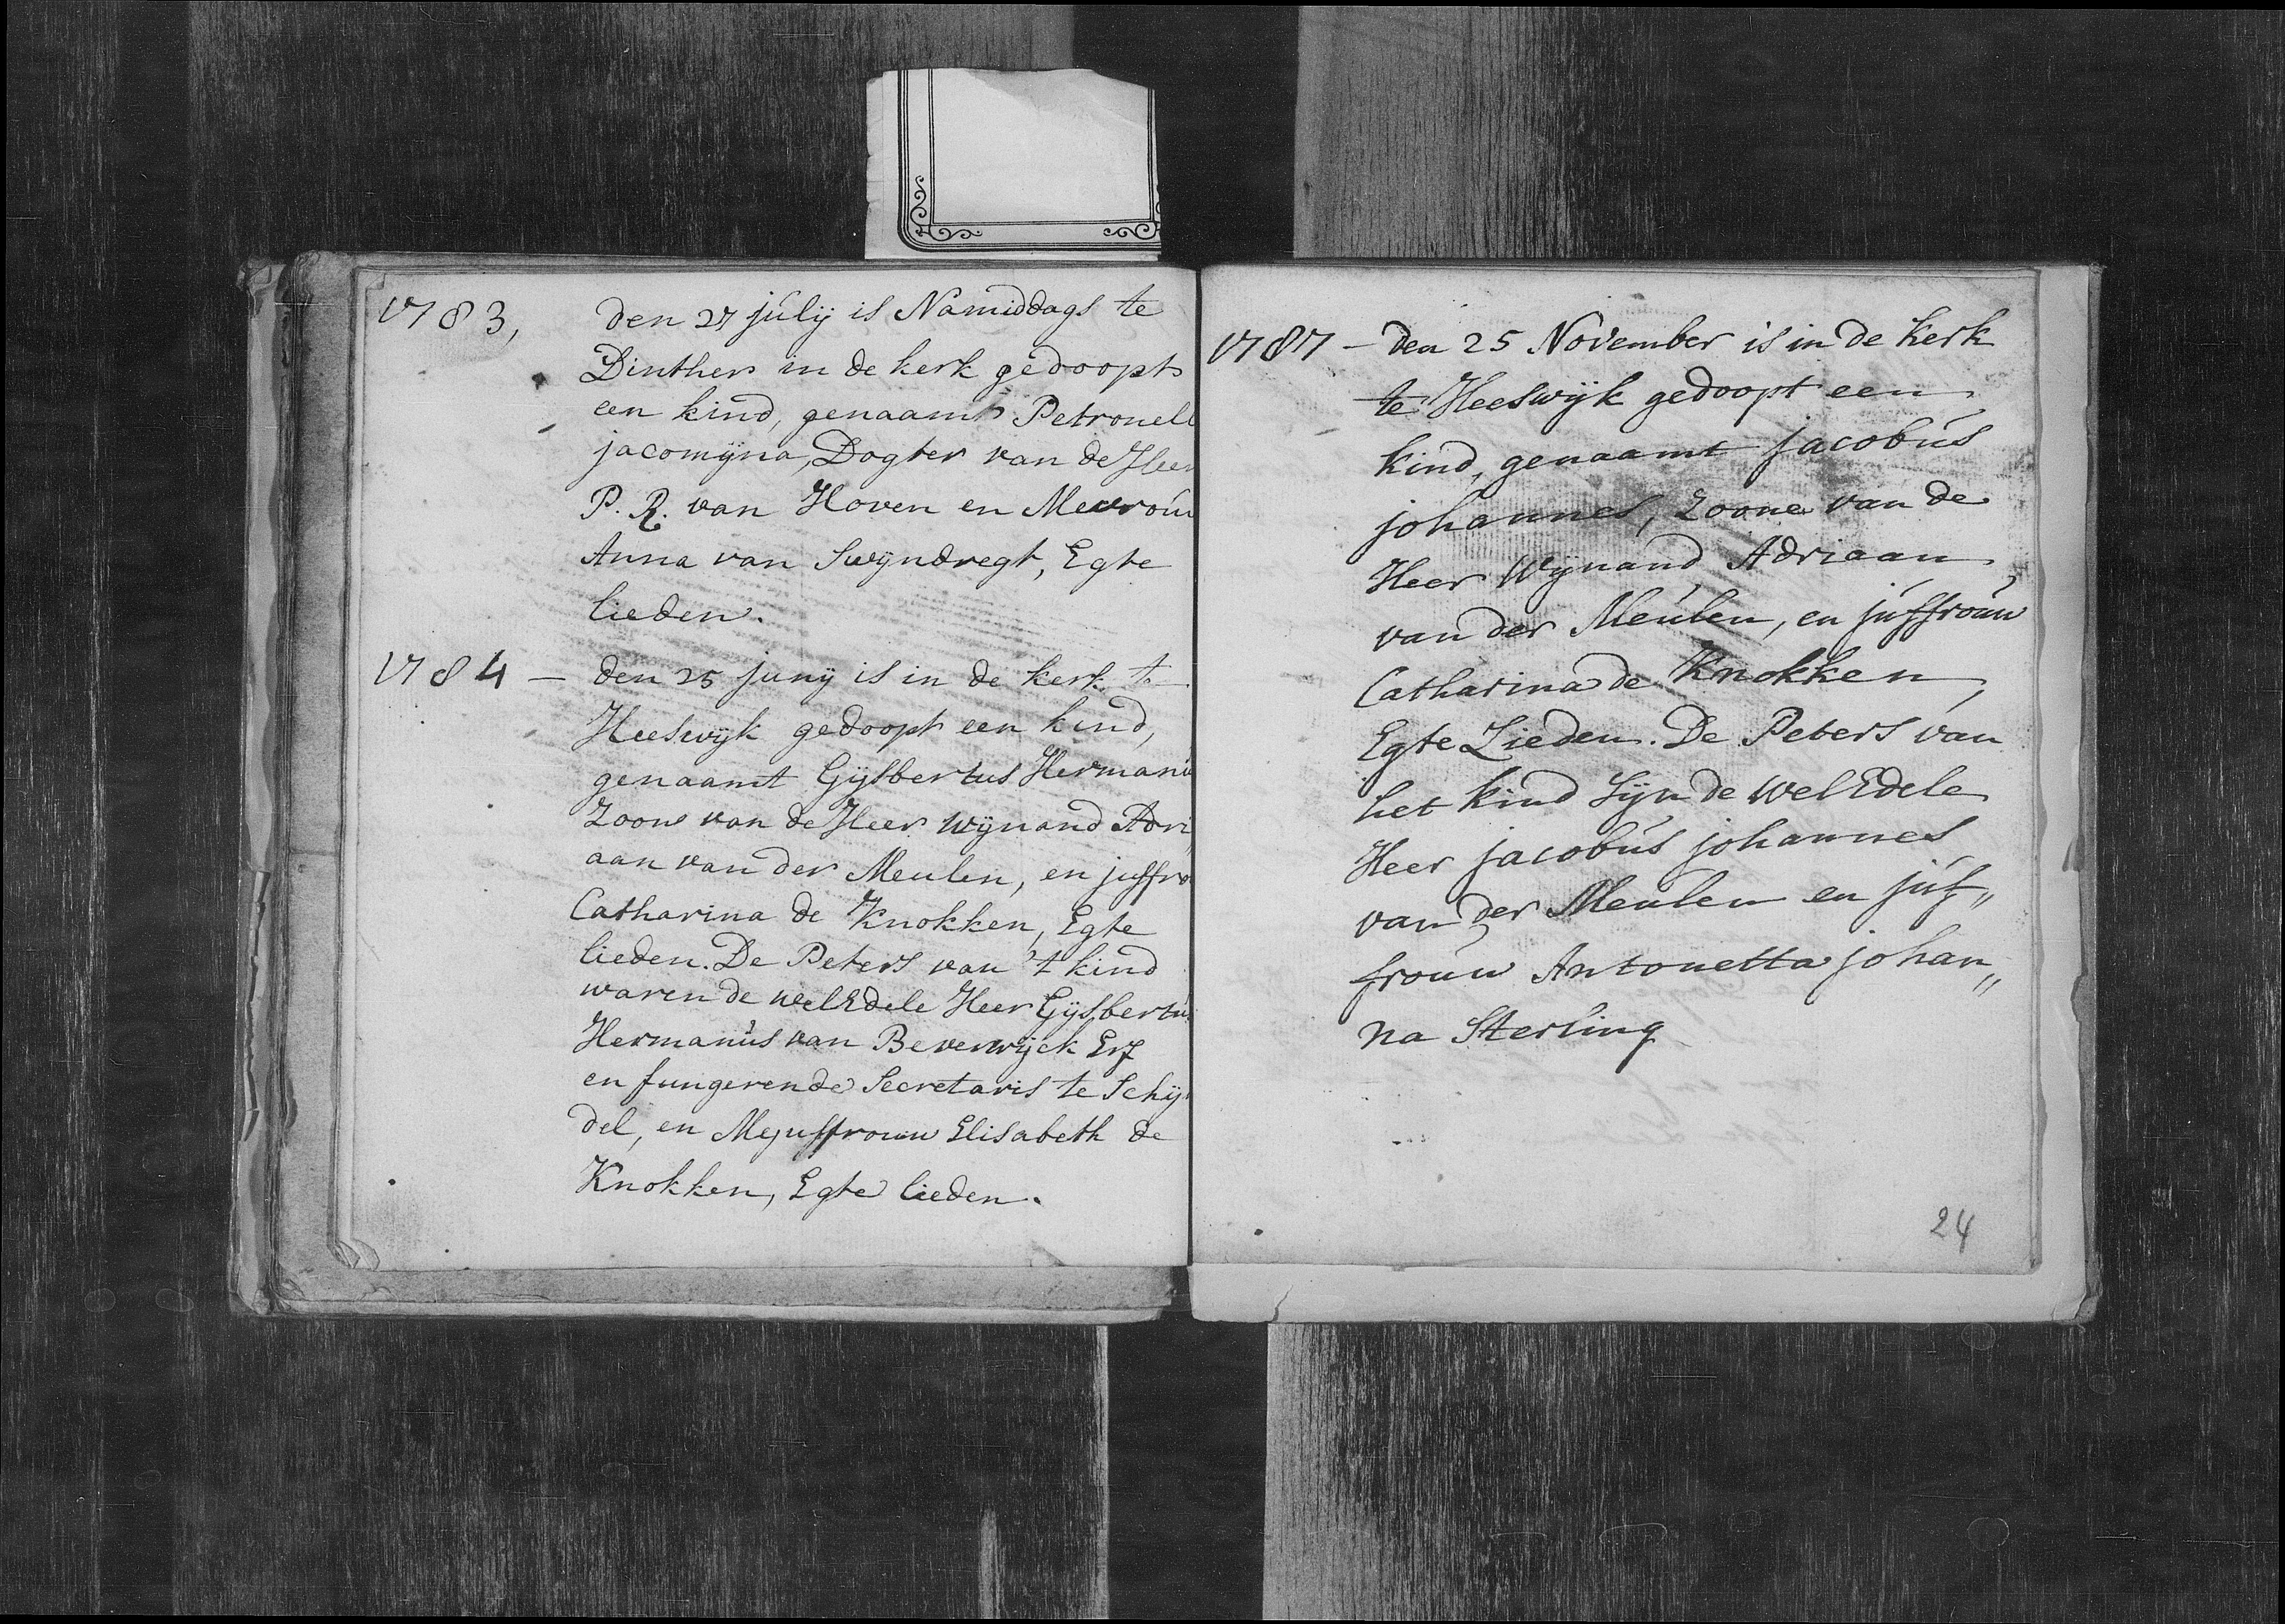 1783, den 27 julij is Namiddags te
Dinther in de kerk gedoopt
een kind, genaamt Petronell
jacomijna, Dogter van de Heer
P. R. van Hoven en Mevrou
Anna van Swijndregt, Egte
lieden.
1784 – den 25 junij is in de kerk te
Heeswijk gedoopt een kind,
genaamt Gijsbertus Hermanu
Zoon van de Heer Wijnand Adri„
aan van der Meulen, en juffro
Catharina de Knokken, Egte
lieden. De Peters van 't kind
waren de welEdele Heer Gijsbertus
Hermanus van Beverwijck Erf
en fungerende Secretaris te Schijn
del, en Mejuffrouw Elisabeth de
Knokken, Egte lieden.
1787 – den 25 November is in de kerk
te Heeswijk gedoopt een
kind, genaamt jacobus
johannes, Zoone van de
Heer Wijnand Adriaan
van der Meulen, en juffrouw
Catharina de Knokken,
Egte Lieden. De Peters van
het kind Sijn de WelEdele
Heer jacobus johannes
van der Meulen en juf„
frouw Antonetta johan„
na Sterling
24